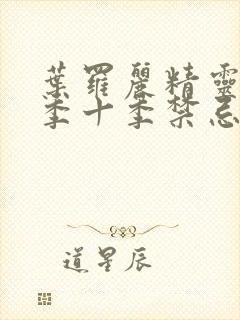 葉羅麗精靈
季十季禁忌
道星辰